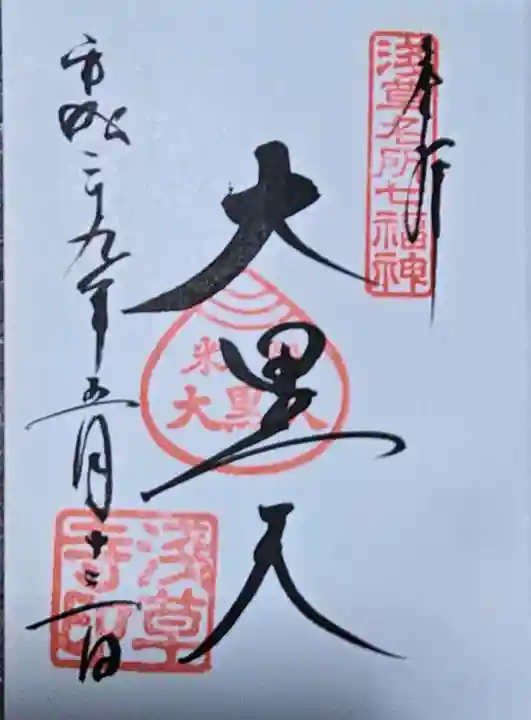 奉拝
浅草名所七福神
大黒天
米 大黒天
平成二十九年五月十二日
浅草寺印